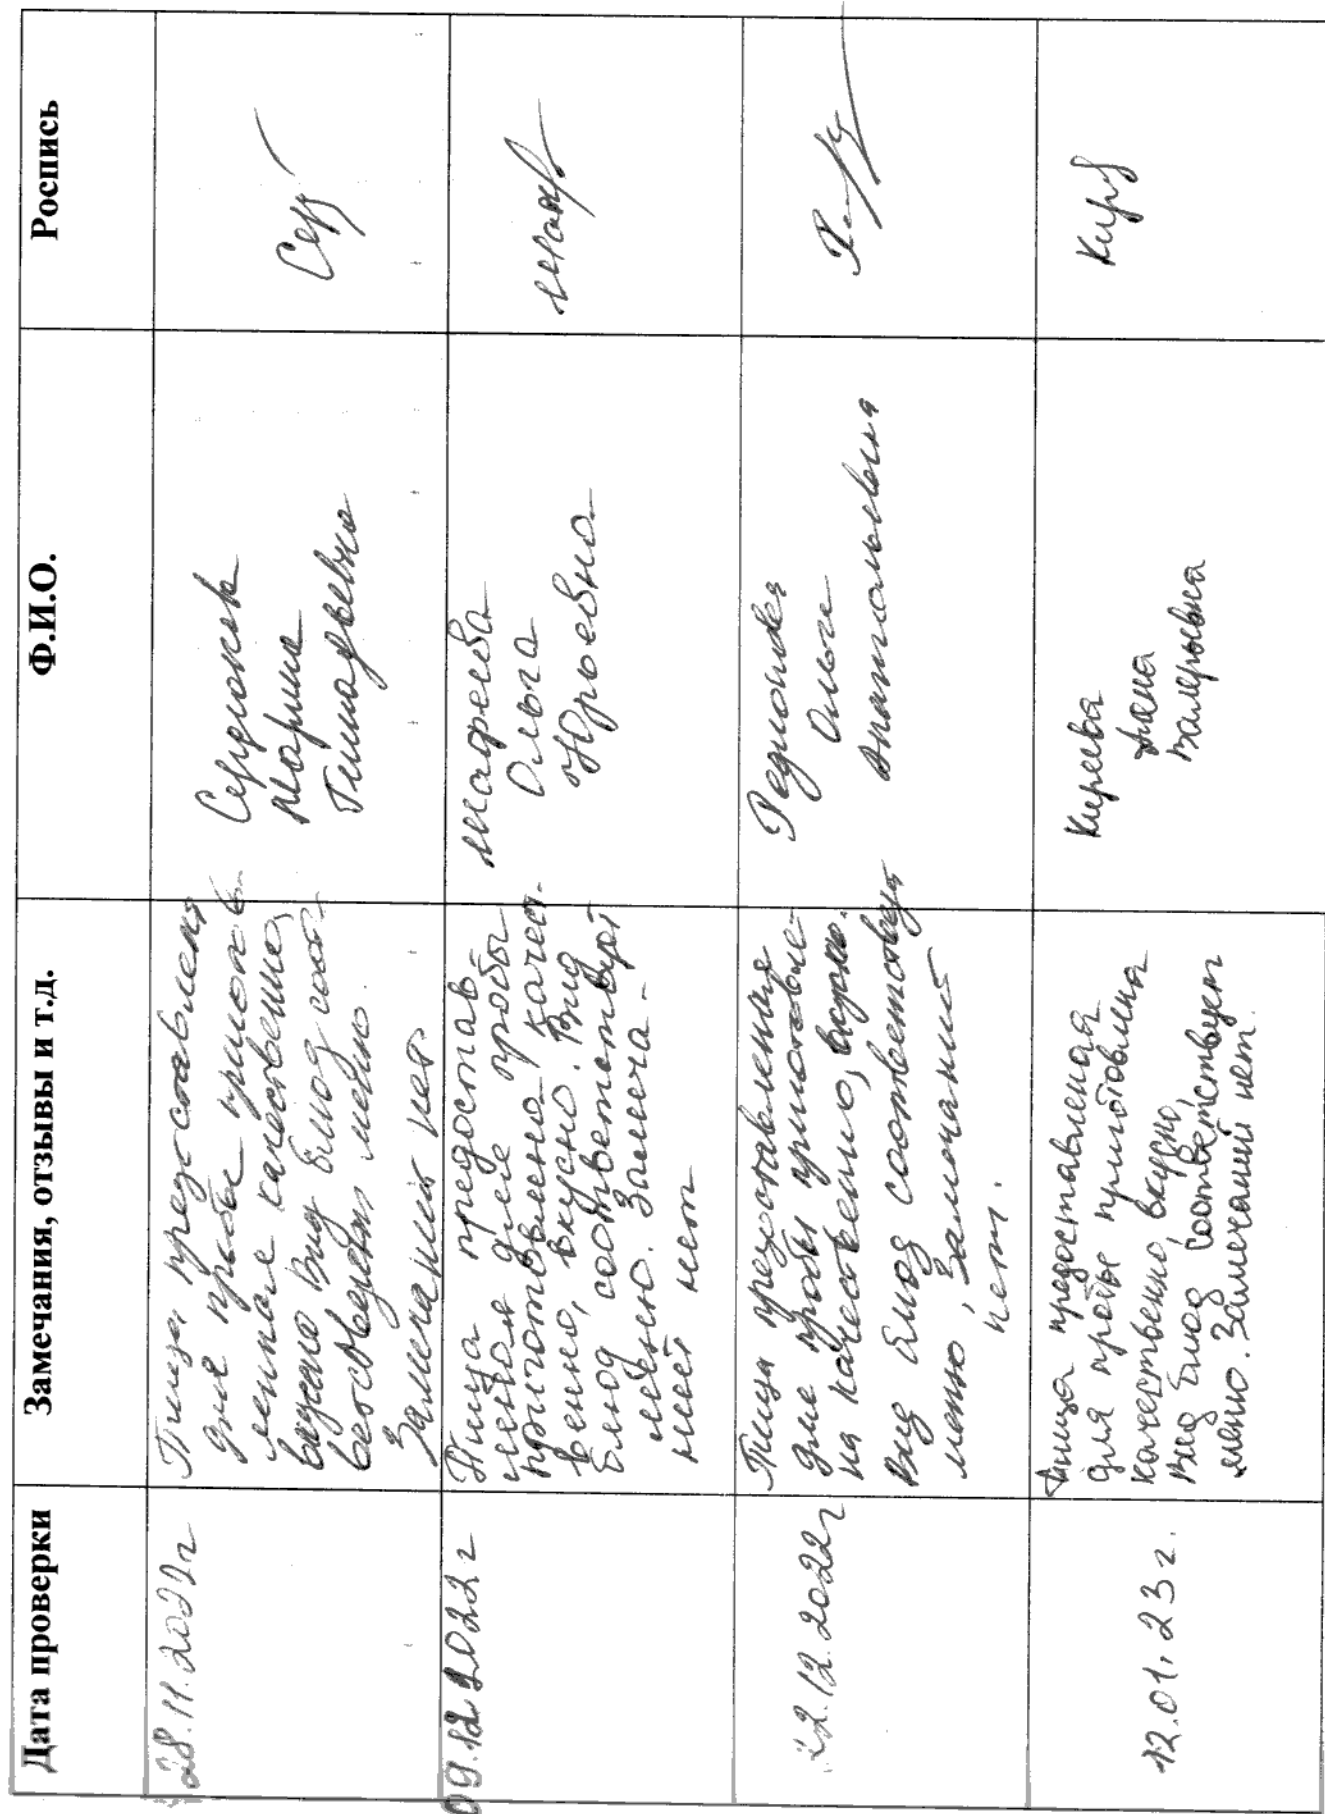 Дата проверки
Замечания, отзывы и т.д.
Ф.И.О.
Роспись
28.11.2022г
Пища, представленя
для пробы приготов-
лення качественно,
вкусно Вид блюд соот-
ветсвует меню.
Замечаний нет
Марина
09.12.2022г
Пища предостав-
ленная для пробы
приготовлена качест-
венно, вкусно. Вид
блюд соответствует
меню. Замеча-
ний нет
Мафеева
Ольга
Юрьевна
12.2022г
Пища предоставленная
для пробы приготовле-
на качественно, вкусно.
Вид блюд соответствует
меню, Замечаний
нет.
Ольга
Анатольевна
12.01.23г.
Пища предоставленная
для пробы приготовлина
качественно, вкусно,
Вид блюд соответствует
меню. Замечаний нет.
Киреева
Анна
Валерьевна